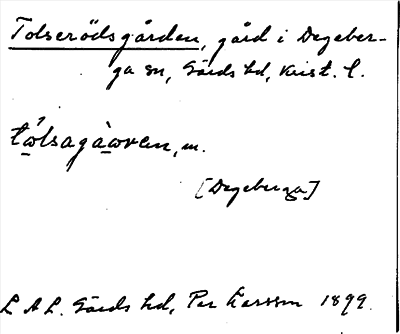 Tolserödsgården, gård i Degeber-
ga sn, Gärds hd, Krist. l.
tώ̲lsagà̲ωren, m.
[Degeberga]
L A L. Gärds hd, Per Larsson 1899.